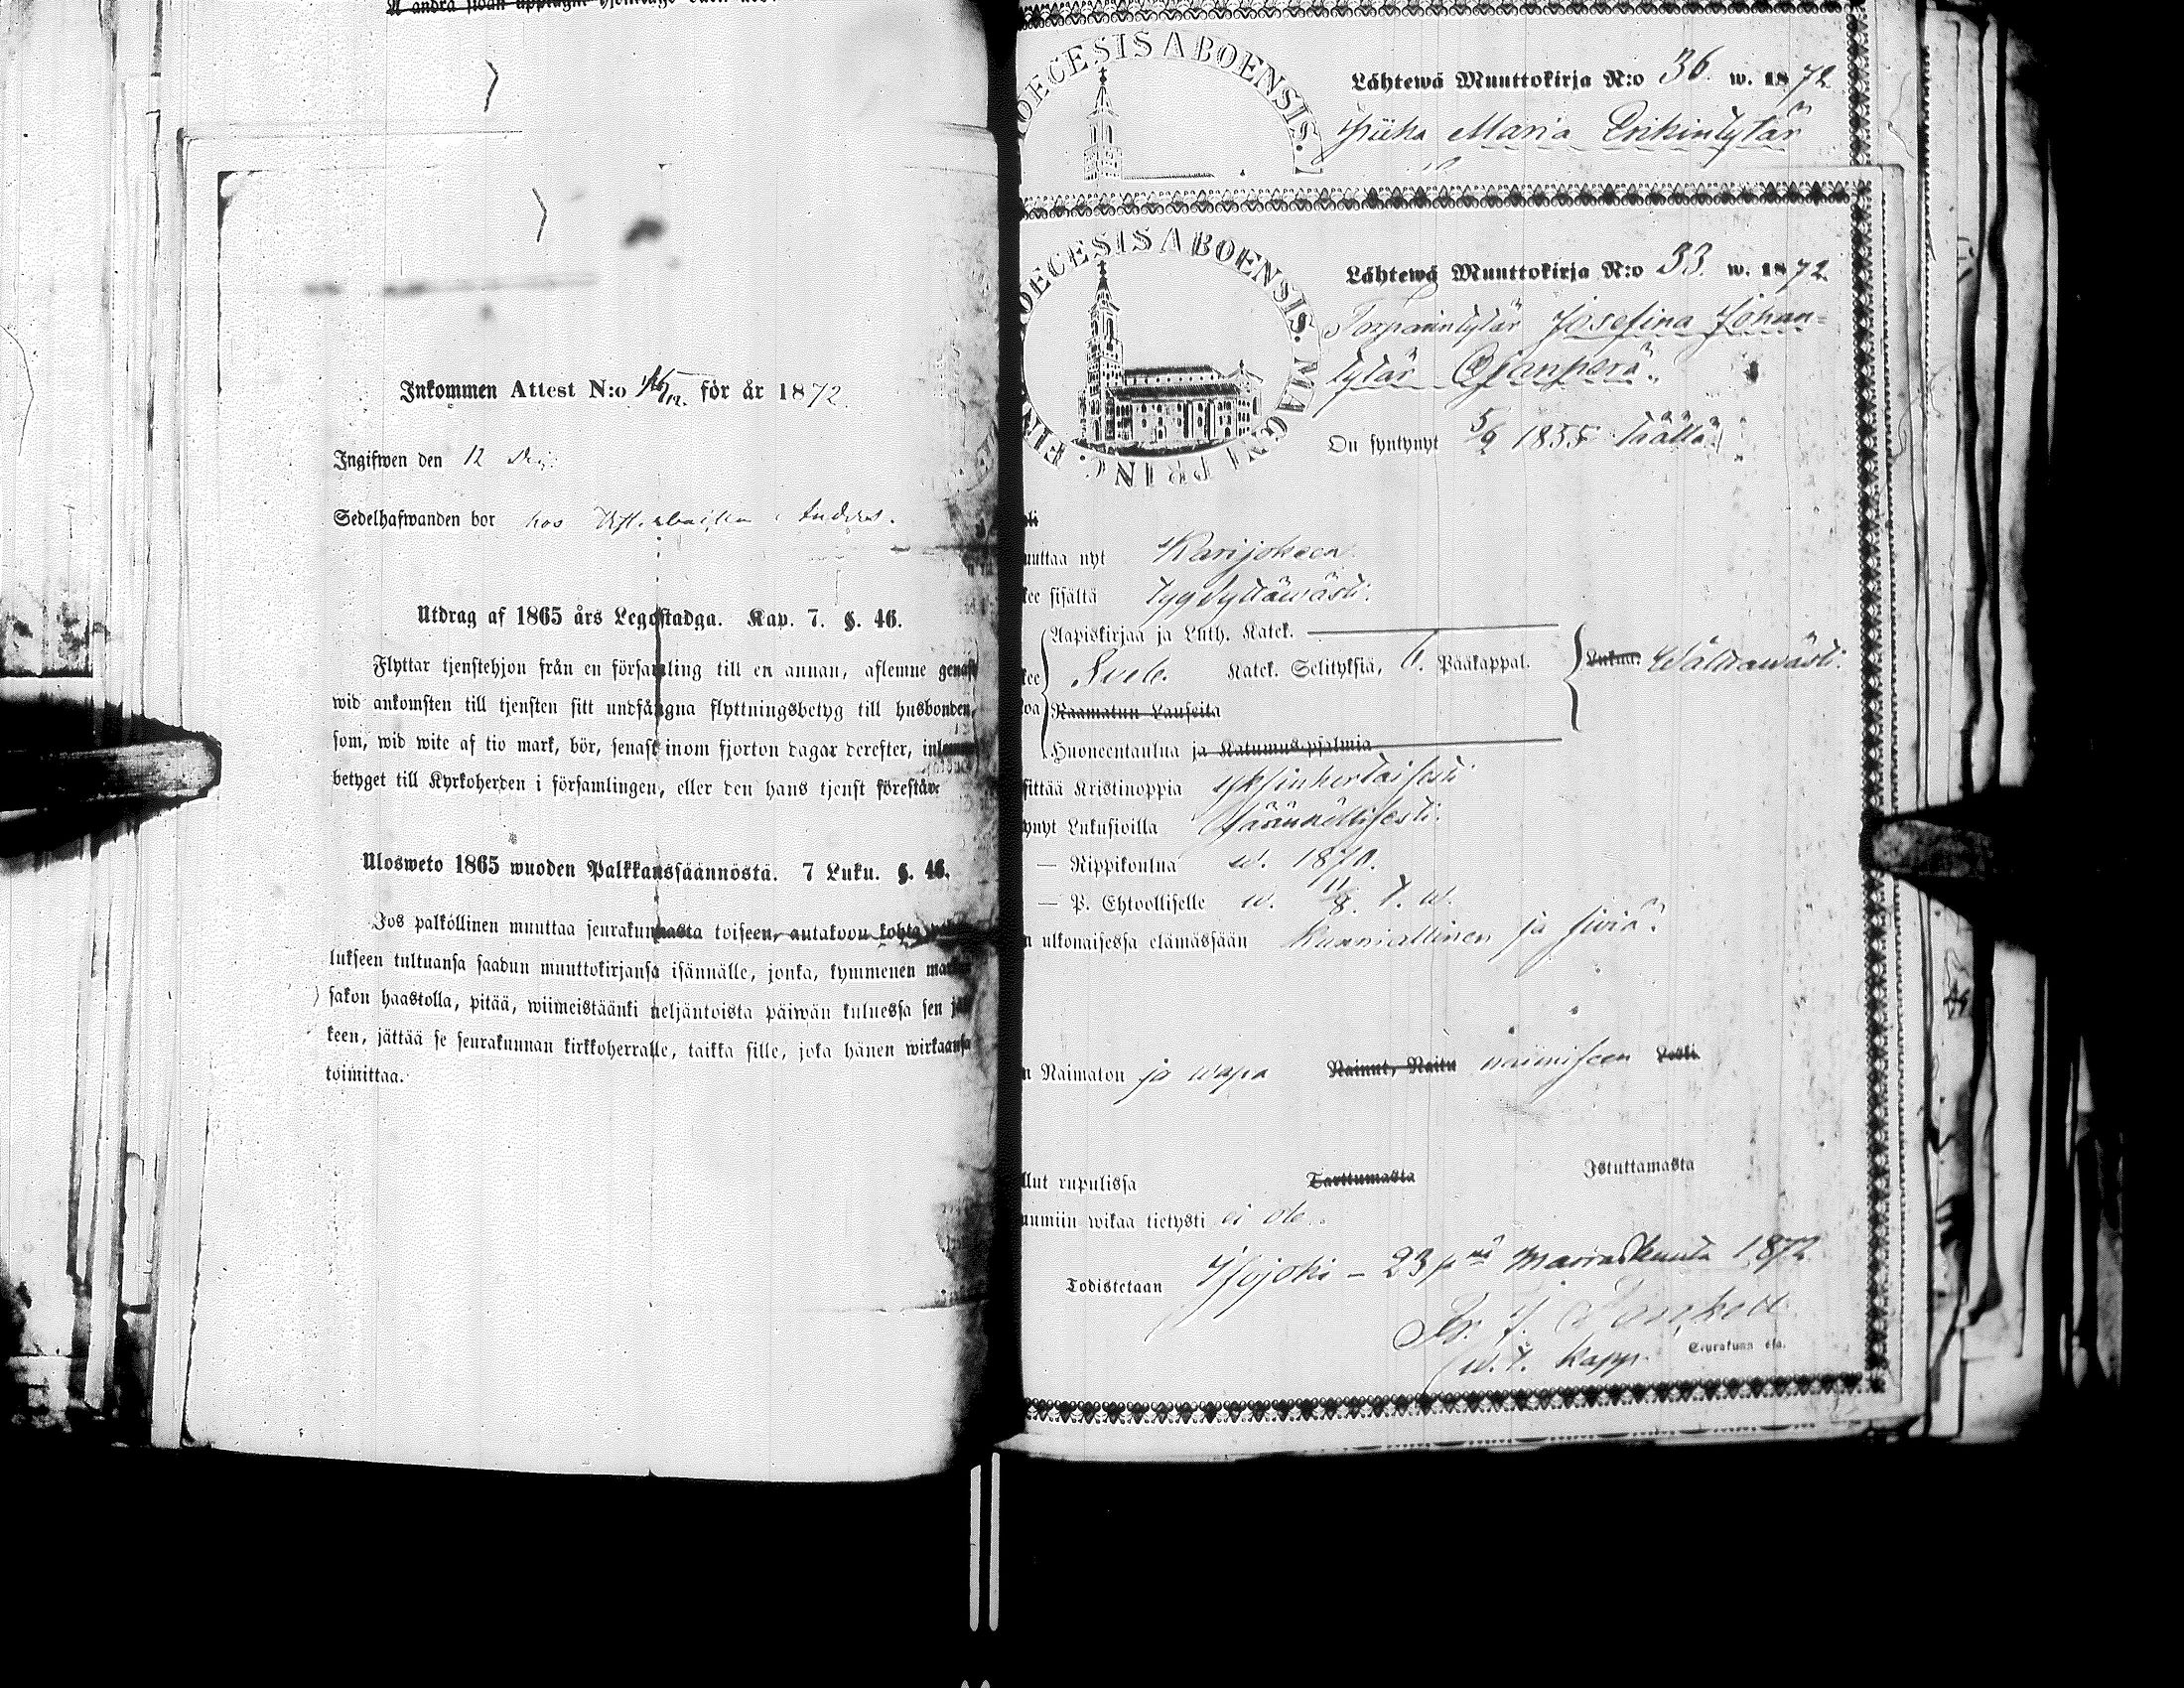 Å andra sidan upptagne
Inkommen Attest N:o för år 1872.
Ingifwen den 12 Dec:
Sedelhafwanden bor hos
Utdrag af 1865 års Legostadga. Kap. 7. §. 46.
Flyttar tjenstehjon från en församling till en annan, aflemne genast
wid ankomsten till tjensten sitt undfångna flyttningsbetyg till husbonden,
som, wid wite af tio mark, bör, senast inom fjorton dagar derefter, inlemna
betyget till Kyrkoherden i församlingen, eller den hans tjenst förestår.
Ulosweto 1865 wuoden Palkkaussäännöstä. 7 Luku. §. 46.
Jos palkollinen muuttaa seurakunnasta toiseen, antakoon kohta
lukseen tultuansa saadun muuttokirjansa isännälle, jonka, kymmenen markan
sakon haastolla, pitää, wiimeistäänki neljäntoista päiwän kuluessa sen jäl
keen, jättää se seurakunnan kirkkoherralle, taikka sille, joka hänen wirkaansa
toimittaa.
OECESIS ABOENSIS.
Lähtewä Muuttokirja N:o 36. w. 1872
Piika Maria Erikintytär
OECESIS ABOENSIS. MAGNI PRINC. FIN
Lähtewä Muuttokirja N:o 33. w. 1872
Torparintytär Josefina Johan-
tytär Ojanperä.
On syntynyt 5/9 1855 täällä.
uuttaa nyt Karijokeen.
kee sisältä tyydyttäwästi.
Aapiskirjaa ja Luth. Katek.
kee Sveb. Katek. Selityksiä, 6. Pääkappal. Lukua. Wälttäwästi.
oa Raamatun Lauseita
Huoneentaulua ja Katumus-psalmia
sittää Kristinoppia yksinkertaisesti
ynyt Lukusioilla säännöllisesti.
— Rippikoulua w. 1870.
— P. Ehtoolliselle w. 11/8. t. w.
n ulkonaisessa elämässään kunniallinen ja siwiä.
n Naimaton ja wapa Nainut, Naitu naimiseen Leski
llut rupulissa Tarttumasta Istuttamasta
uumiin wikaa tietysti ei ole.
Todistetaan Isojoki – 23 p:nä Marraskuuta 1872
w. t. Kapp. Seurakunn